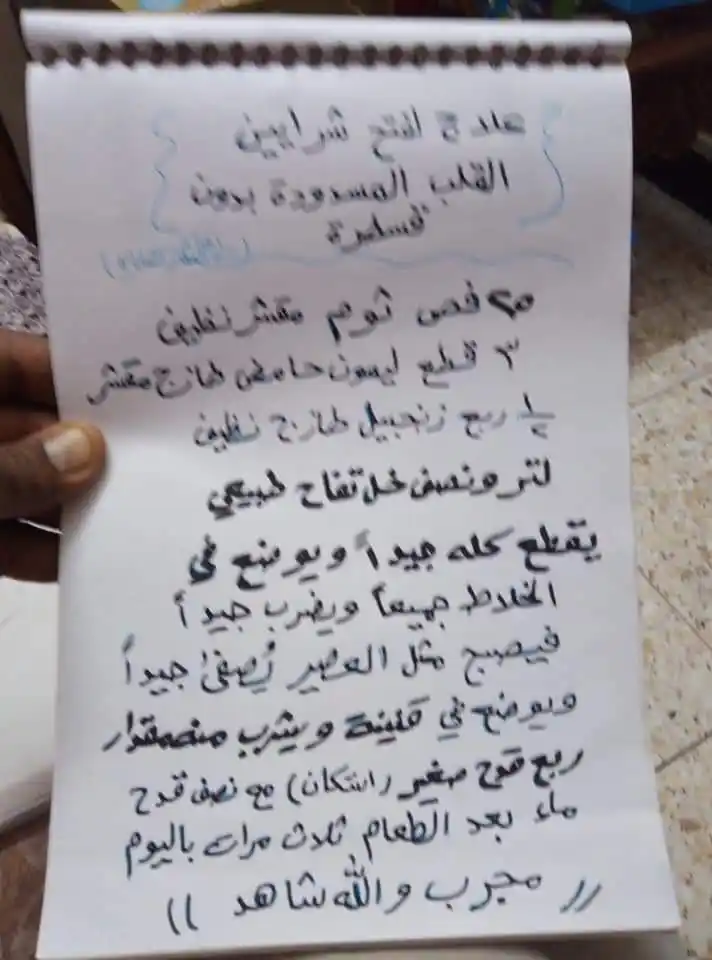 علاج لفتح شرايين
القلب المسدودة بدون
قسطرة
٢٥ فص ثوم مقشر نظيف
٣ قطع ليمون حامض طازج مقشر
ربع زنجبيل طازج نظيف
لتر ونصف خل تفاح طبيعي
يقطع كله جيداً ويوضع في
الخلاط جميعاً ويضرب جيداً
فيصبح مثل العصير يُصفى جيداً
ويوضع في قنينة ويشرب منه مقدار
ربع قدح صغير (استكان) مع نصف قدح
ماء بعد الطعام ثلاث مرات باليوم
(( مجرب والله شاهد ))